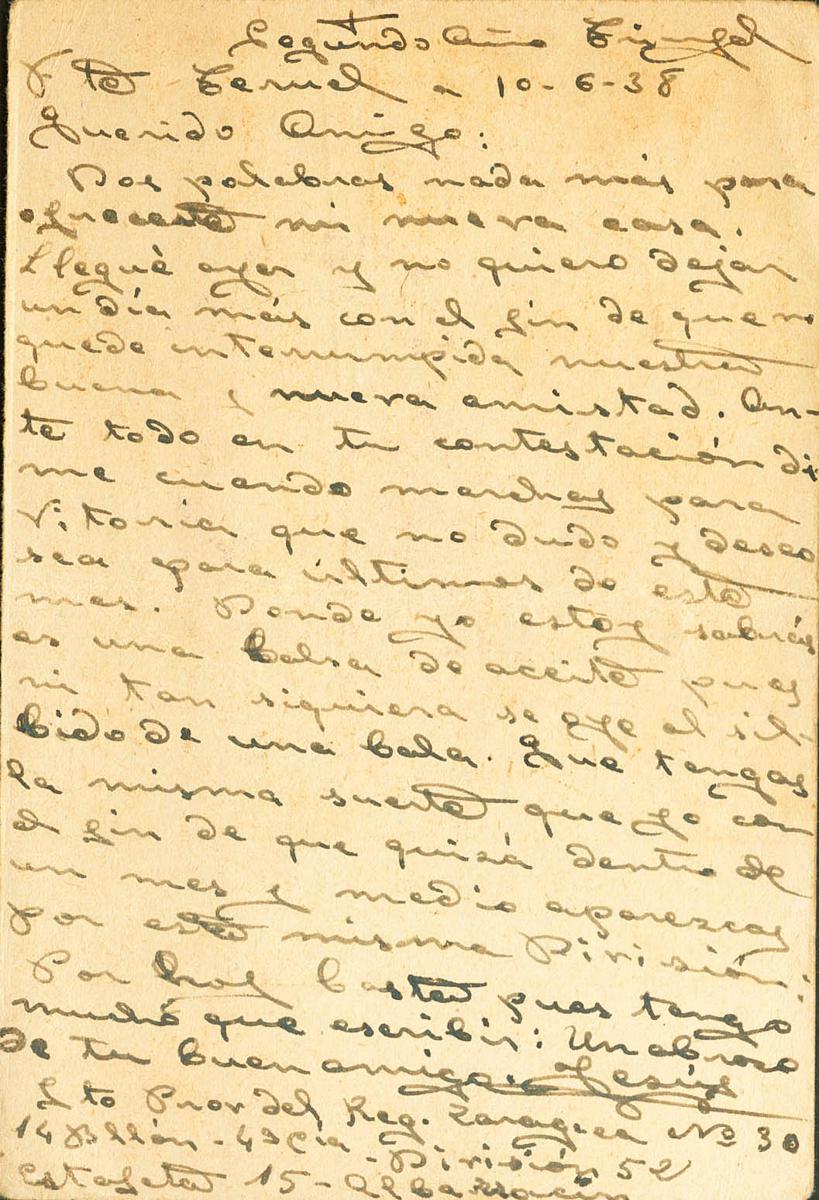 Segundo Año Triunfal
Fte Teruel a 10-6-38
Querido Amigo:
Dos palabras nada más para
ofrecerte mi nueva casa.
Llegué ayer y no quiero dejar
un día más con el fin de que no
quede interrumpida nuestra
buena y nueva amistad. An-
te todo en tu contestación di
me cuando marchas para
Vitoria que no dudo y deseo
sea para últimos de este
mes. Donde yo estoy sabrás
es una balsa de aceite pues
ni tan siquiera se oye el sil-
bido de una bala. Que tengas
la misma suerte que yo con
el fin de que quizá dentro de
un mes y medio aparezcas
por esta misma División.
Por hoy baste pues tengo
mucho que escribir: Un abrazo
de tu buen amigo. Jesús
Sto Prov del Reg. Zaragoza Nº 30
14 Bllón - 4ª Cía - División 52
Estafeta 15 - Albarracín